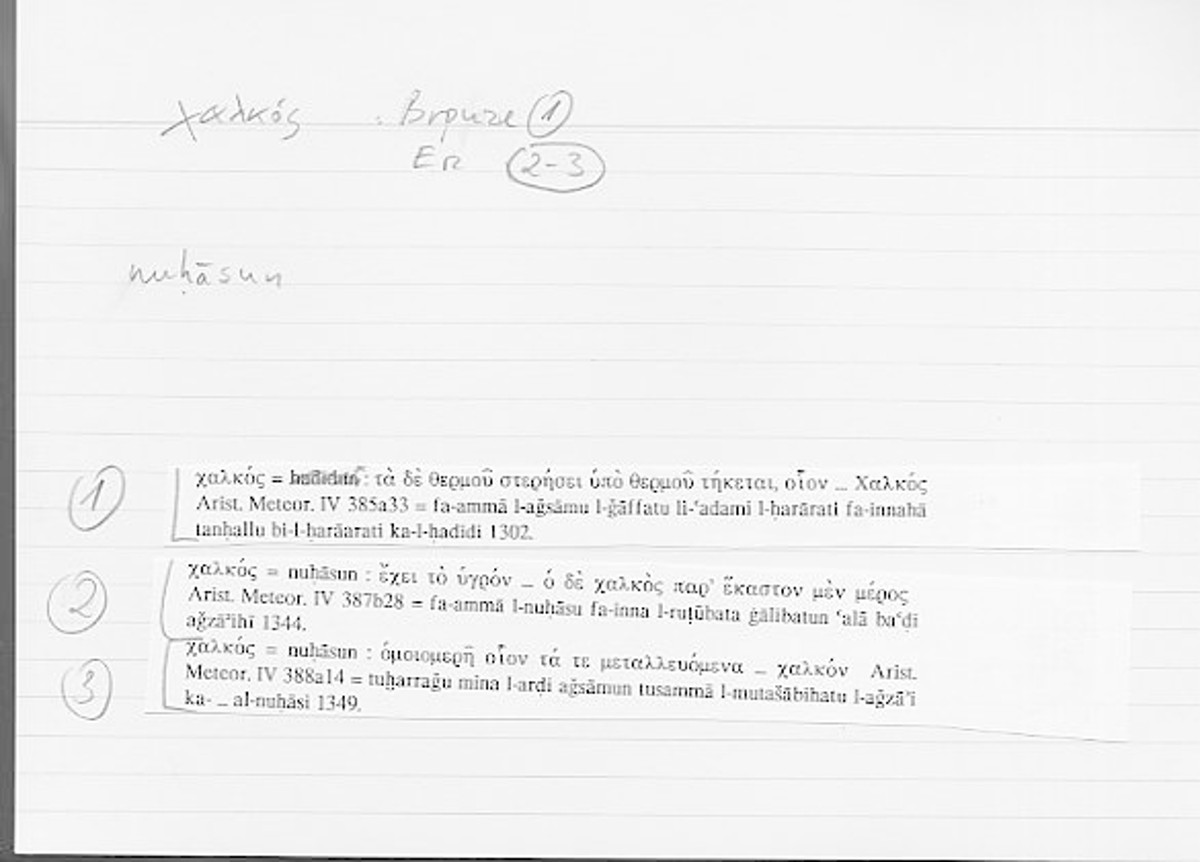 χαλκός : Bronze ①
Erz ②-③
nuḥāsun
① χαλκός = ḥadīdun : τὰ δὲ θερμοῦ στερήσει ὑπὸ θερμοῦ τήκεται, οἷον ... Χαλκός
Arist. Meteor. IV 385a33 = fa-ammā l-aǧsāmu l-ǧāffatu li-ʿadami l-ḥarārati fa-innahā
tanḥallu bi-l-ḥarāarati ka-l-ḥadīdi 1302.
② χαλκός = nuḥāsun : ἔχει τὸ ὑγρόν ... ὁ δὲ χαλκὸς παρ' ἕκαστον μὲν μέρος
Arist. Meteor. IV 387b28 = fa-ammā l-nuḥāsu fa-inna l-ruṭūbata ġālibatun ʿalā baʿḍi
aǧzāʾihī 1344.
③ χαλκός = nuḥāsun : ὁμοιομερῆ οἷον τά τε μεταλλευόμενα ... χαλκόν Arist.
Meteor. IV 388a14 = tuḥarraǧu mina l-arḍi aǧsāmun tusammā l-mutašābihatu l-aǧzāʾi
ka- ... al-nuḥāsi 1349.